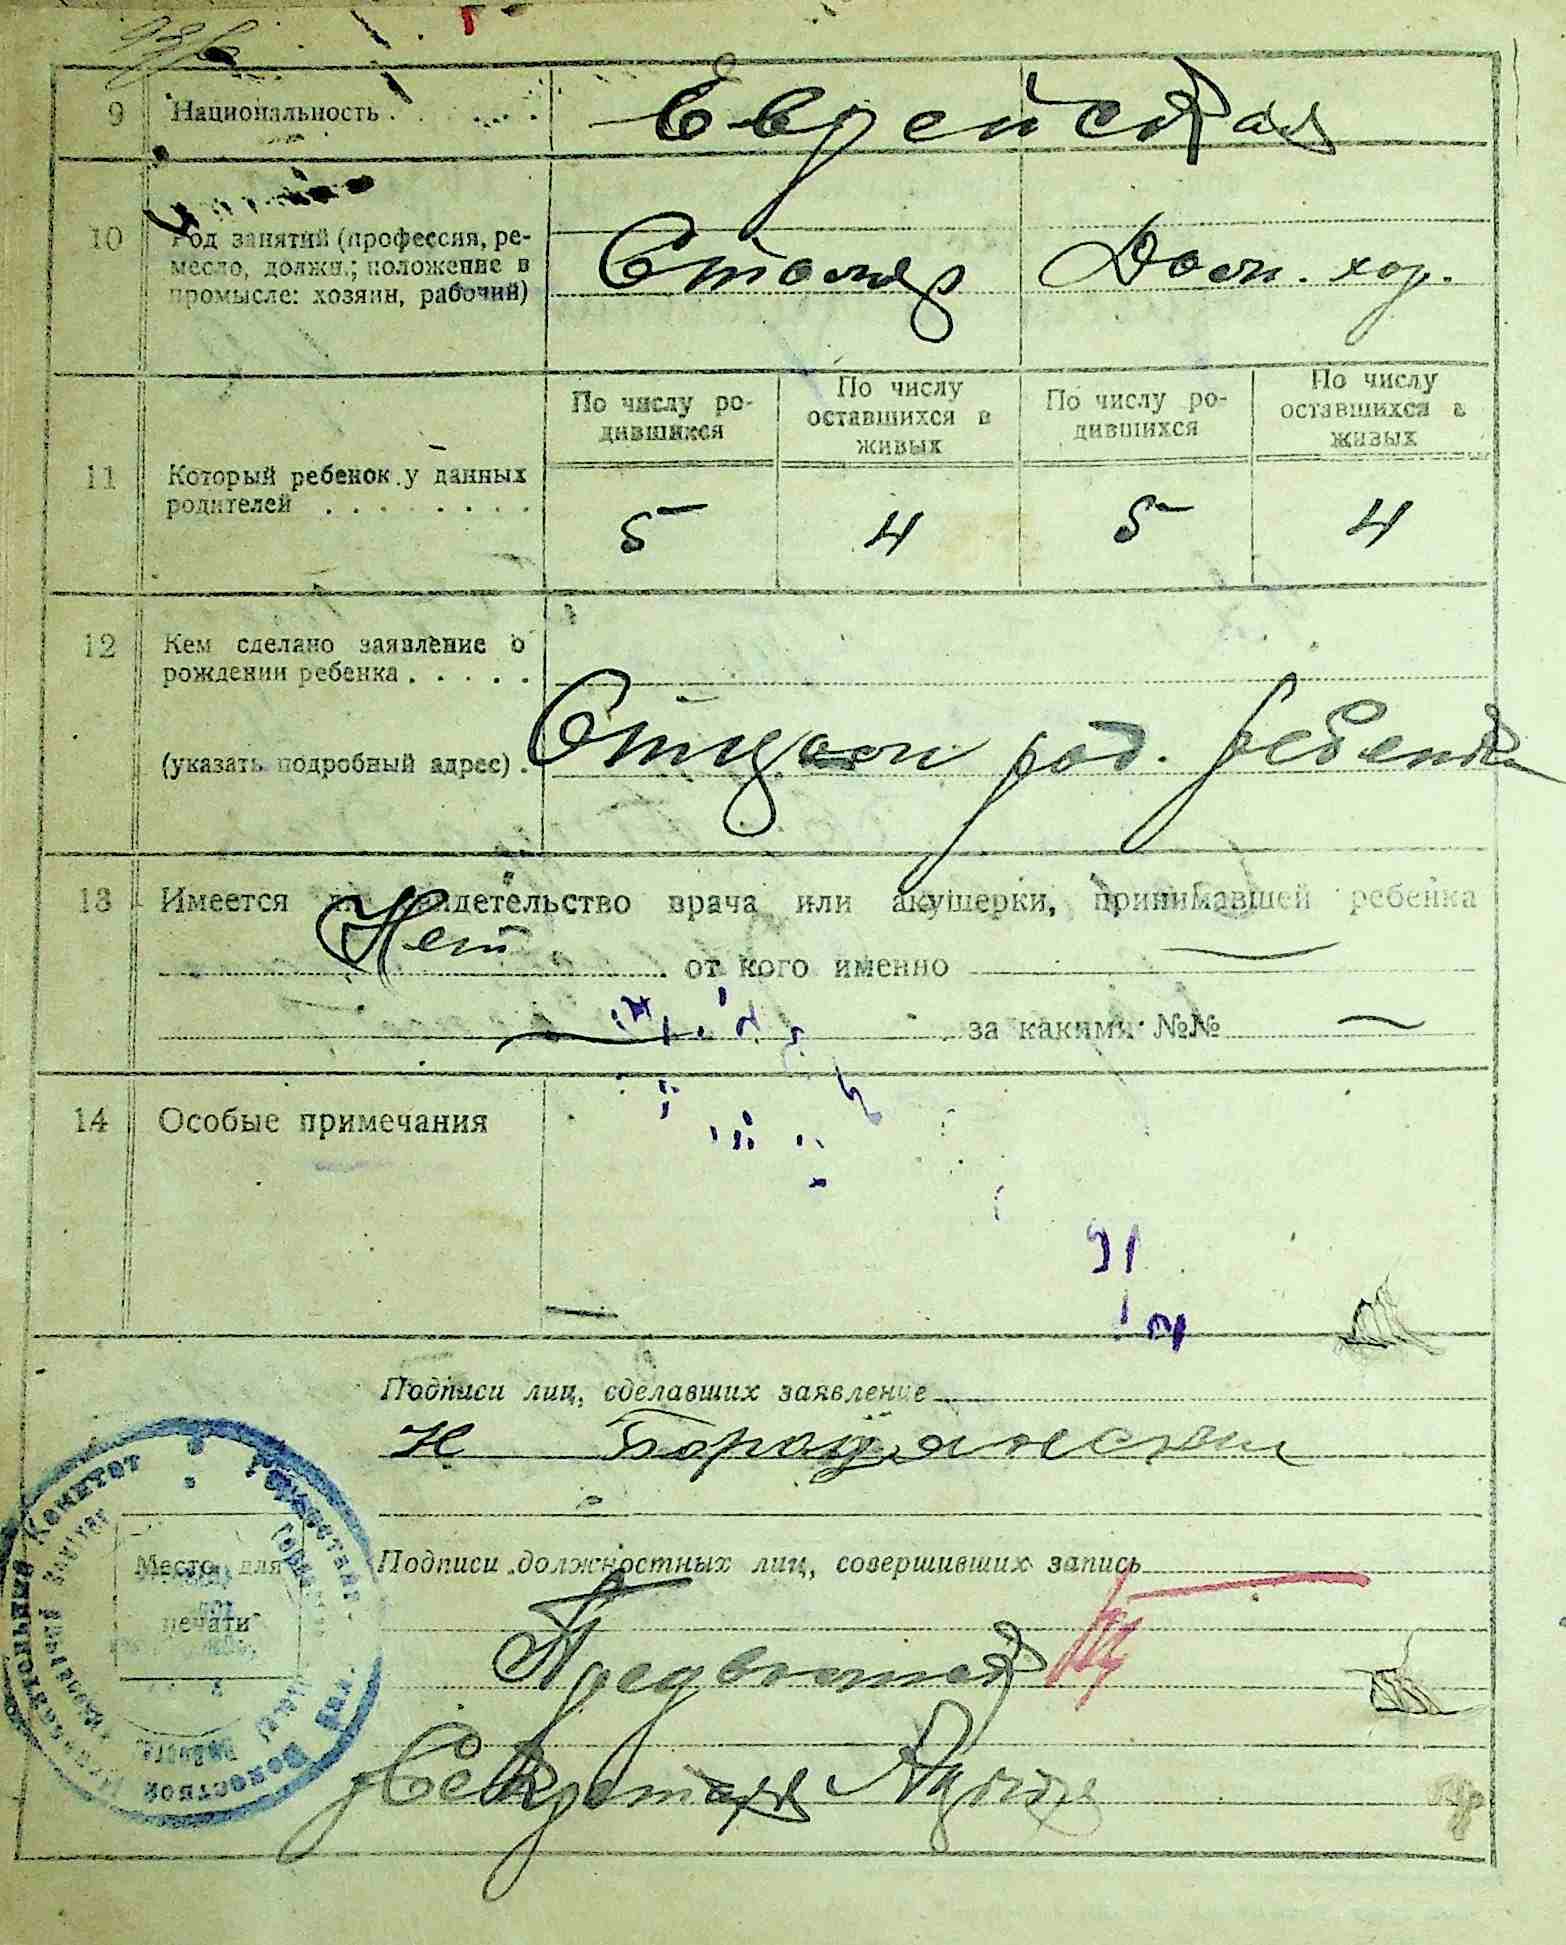 9 Национальность . . . . . . . Еврейская
10 Род занятий (профессия, ре-
месло, должн.; положение в
промысле: хозяин, рабочий)
Столяр Дом. хоз.
По числу ро-
дившихся
По числу
оставшихся в
живых
По числу ро-
дившихся
По числу
оставшихся в
живых
11 Который ребенок у данных
родителей . . . . . . . .
5 4 5 4
12 Кем сделано заявление о
рождении ребенка . . . . .
(указать подробный адрес) .
Отцом род. ребенка
13 Имеется ли свидетельство врача или акушерки, принимавшей ребенка
Нет от кого именно
за какими №№
14 Особые примечания
Подписи лиц, сделавших заявление
Н Бородянский
Подписи должностных лиц, совершивших запись
Место для
печати
Секретарь